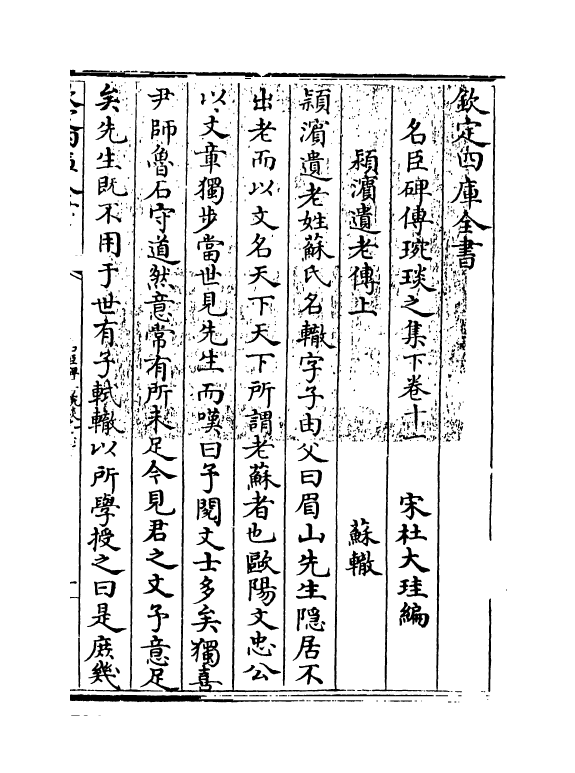 欽定四庫全書
名臣碑傳琬琰之集下卷十一 宋杜大珪編
潁濵遺老傳上 蘇轍
潁濵遺老姓蘇氏名轍字子由父曰眉山先生隠居不
出老而以文名天下天下所謂老蘇者也歐陽文忠公
以文章獨步當世見先生而嘆曰予閱文士多矣獨喜
尹師魯石守道然意常有所未足今見君之文予意足
矣先生既不用于世有子軾轍以所學授之曰是庶幾